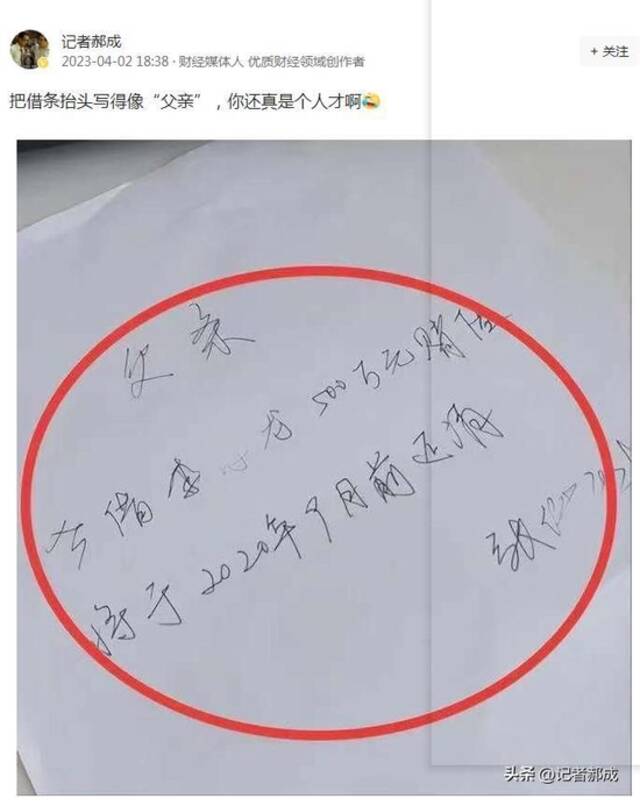 记者郝成
2023-04-02 18:38 · 财经媒体人 优质财经领域创作者
+ 关注
把借条抬头写得像“父亲”,你还真是个人才啊🤣
欠条
今借李 龙500万元赌
将于2020年9月前还清
头条 @记者郝成